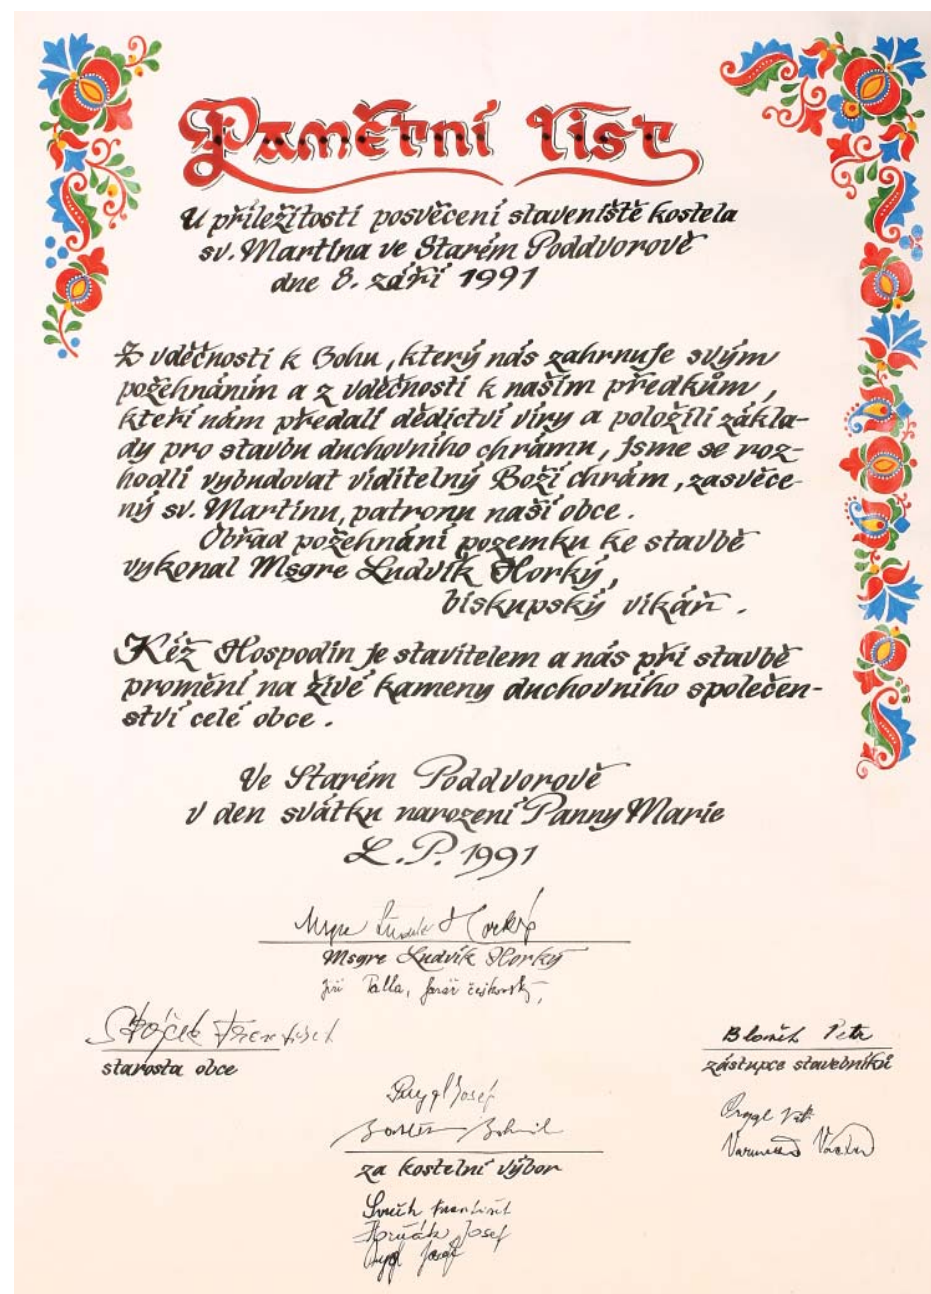 Pamětní list
U příležitosti posvěcení staveniště kostela
sv. Martina ve Starém Poddvorově
dne 8. září 1991
Z vděčnosti k Bohu, který nás zahrnuje svým
požehnáním a z vděčnosti k našim předkům,
kteří nám předali dědictví víry a položili zákla-
dy pro stavbu duchovního chrámu, jsme se roz-
hodli vybudovat viditelný Boží chrám, zasvěce-
ný sv. Martinu, patronu naší obce.
Obřad požehnání pozemku ke stavbě
vykonal Msgre Ludvík Horký,
biskupský vikář.
Kéž Hospodin je stavitelem a nás při stavbě
promění na živé kameny duchovního společen-
ství celé obce.
Ve Starém Poddvorově
v den svátku narození Panny Marie
L.P. 1991
Msgre Ludvík Horký
Msgre Ludvík Horký
Jiří Palla, farář čejkovský,
František
starosta obce
Petr
zástupce stavebníků
Prygl Josef
Prygl Vít
Václav
za kostelní výbor
František
Horňák Josef
Prygl Josef